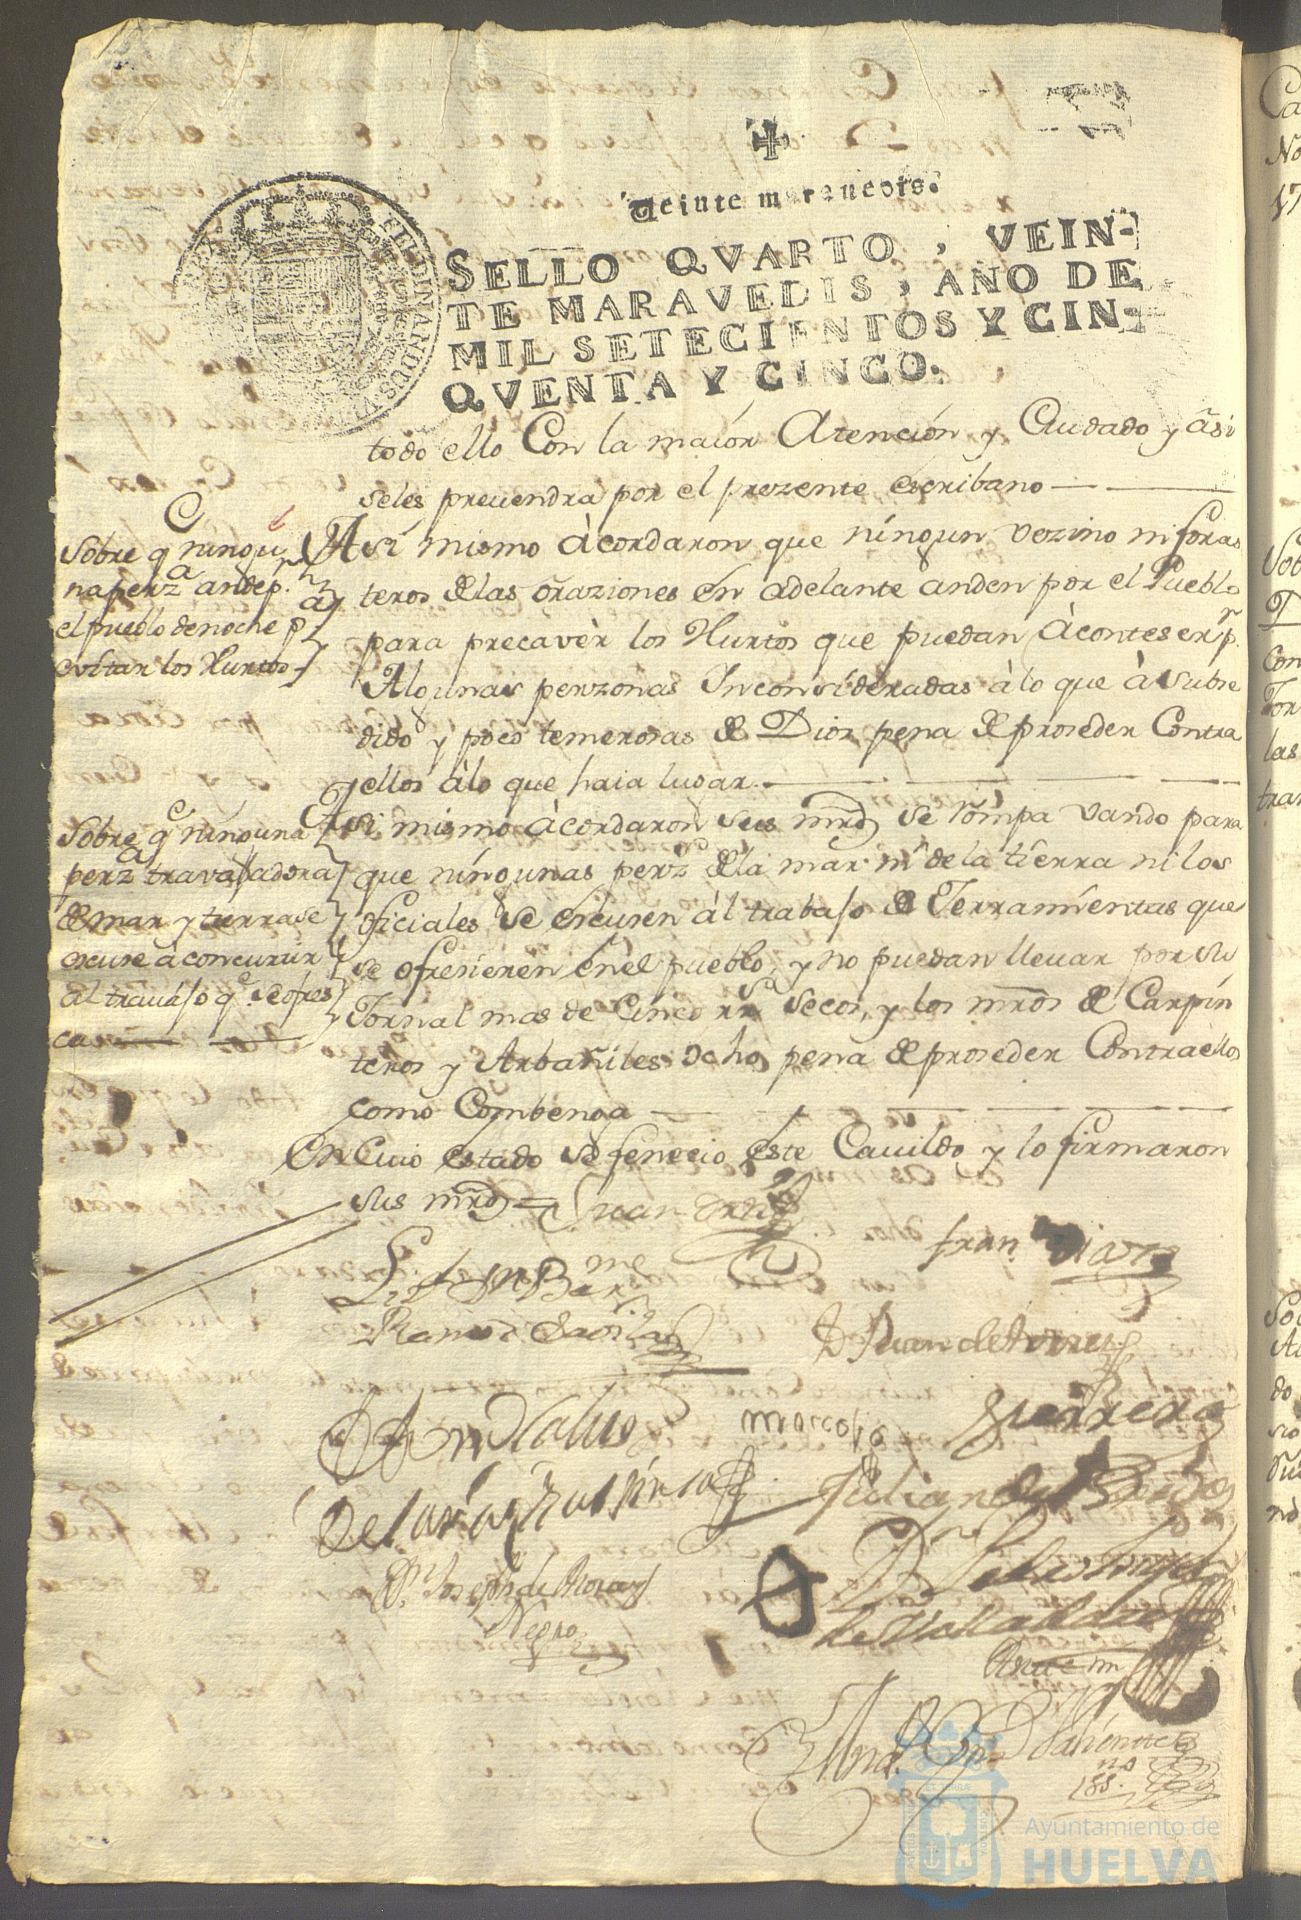 Veinte maravedis.
SELLO QVARTO, VEIN-
TE MARAVEDIS, AÑO DE
MIL SETECIENTOS Y CIN-
QVENTA Y CINCO.
FERDINANDUS VI
todo ello Con la maior Atencion y Cuidado y asi
seles prevendra por el prezente escribano
Sobre q.e ningu
na perz.a ande p.r
el pueblo de noche p.a
evitar los Hurtos
Asi mismo acordaron que ningun vezino ni foras
teros de las oraziones en adelante anden por el Pueblo
para precaver los Hurtos que puedan aconteser p.r
Algunas perzonas Inconsideradas a lo que a subse
dido y poco temerosas de Dios pena de proseder Contra
ellos a lo que haia lugar.
Sobre q.e ninguna
perz.a travajadora
de mar y tierra se
escuse a concurrir
al travajo q.e se ofres
ca
Asi mismo acordaron sus mrds se rompa vando para
que ningunas perz.s de la mar ni de la tierra ni los
oficiales se escusen al trabajo de Herramientas que
se ofresieren en el pueblo, y no puedan llevar por su
Jornal mas de Cinco rr.s secos, y los mros de Carpin
teros y Arbañiles ocho pena de proseder Contra ellos
como Combenga
En Cuio estado se fenecio este Cavildo y lo firmaron
sus mrds = Juan Ortiz
fran.co Diaz
Ramos Davila
D Juan de
Marcos
Herrera
Julian de
D.n Joseph de
Negro
D.n
Ante mi
Valiente
Ayuntamiento de
HUELVA